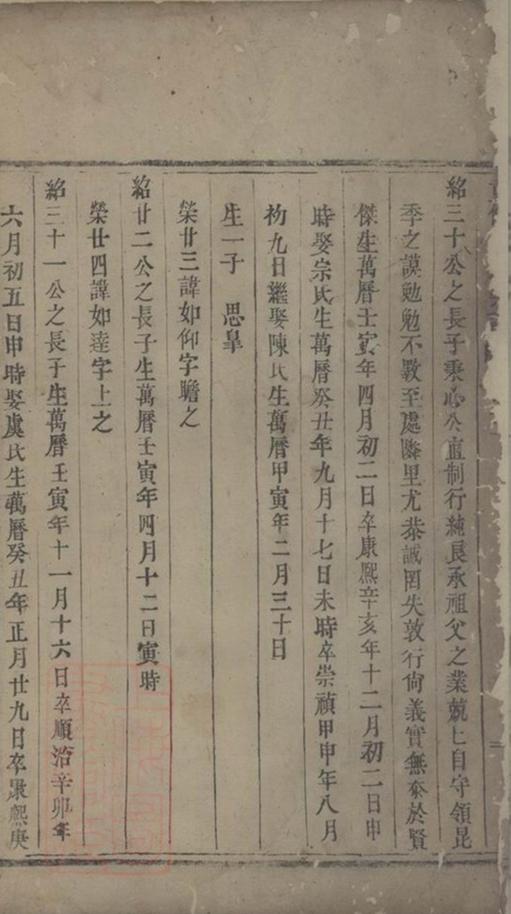 紹三十公之長子秉心公直制行純良承祖父之業兢匕自守領昆
季之謨勉勉不斁至處隣里尤恭誠罔失敦行尙義實無忝於賢
傑生萬曆壬寅年四月初二日卒康熙辛亥年十二月初二日申
時娶宗氏生萬曆癸丑年九月十七日未時卒崇禎甲申年八月
初九日繼娶陳氏生萬曆甲寅年二月三十日
生一子　思皐
榮廿三諱如仰字瞻之
紹廿二公之長子生萬曆壬寅年四月十二日寅時
榮廿四諱如達字上之
紹三十一公之長子生萬曆壬寅年十一月十六日卒順治辛卯年
六月初五日申時娶虞氏生萬曆癸丑年正月廿九日卒康熙庚